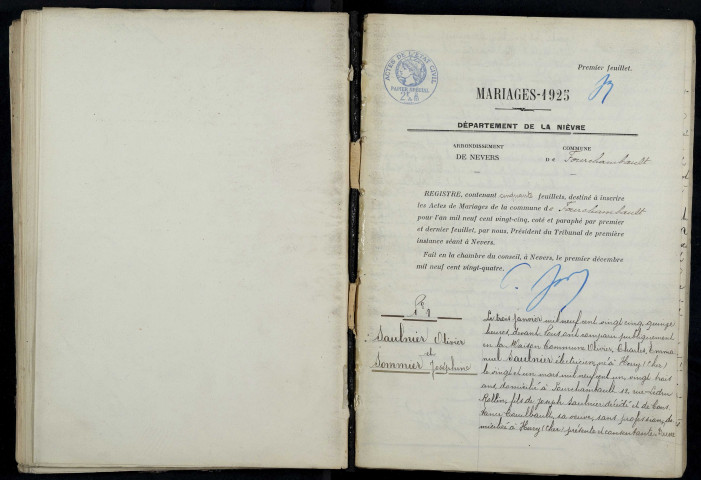 Premier feuillet.
ACTES DE L'ETAT CIVIL
PAPIER SPECIAL
MARIAGES-1925
DÉPARTEMENT DE LA NIÈVRE
ARRONDISSEMENT
DE NEVERS
COMMUNE
DE Fourchambault
REGISTRE, contenant cinquante feuillets, destiné à inscrire
les Actes de Mariages de la commune de Fourchambault
pour l'an mil neuf cent vingt-cinq, coté et paraphé par premier
et dernier feuillet, par nous, Président du Tribunal de première
instance séant à Nevers.
Fait en la chambre du conseil, à Nevers, le premier décembre
mil neuf cent vingt-quatre.
Saulnier Olivier
et
Sommier Joséphine
Le trois janvier mil neuf cent vingt cinq, quinze
heures, devant Nous ont comparu publiquement
en la Maison Commune Olivier, Charles, Emma
nuel Saulnier électricien, né à Herry (Cher)
le vingt et un mars mil neuf cent un, vingt trois
ans, domicilié à Fourchambault 12 rue Ledru
Rollin, fils de Joseph Saulnier décédé et de
sa veuve, sans profession, do
micilié à Herry (Cher) présente et consentante